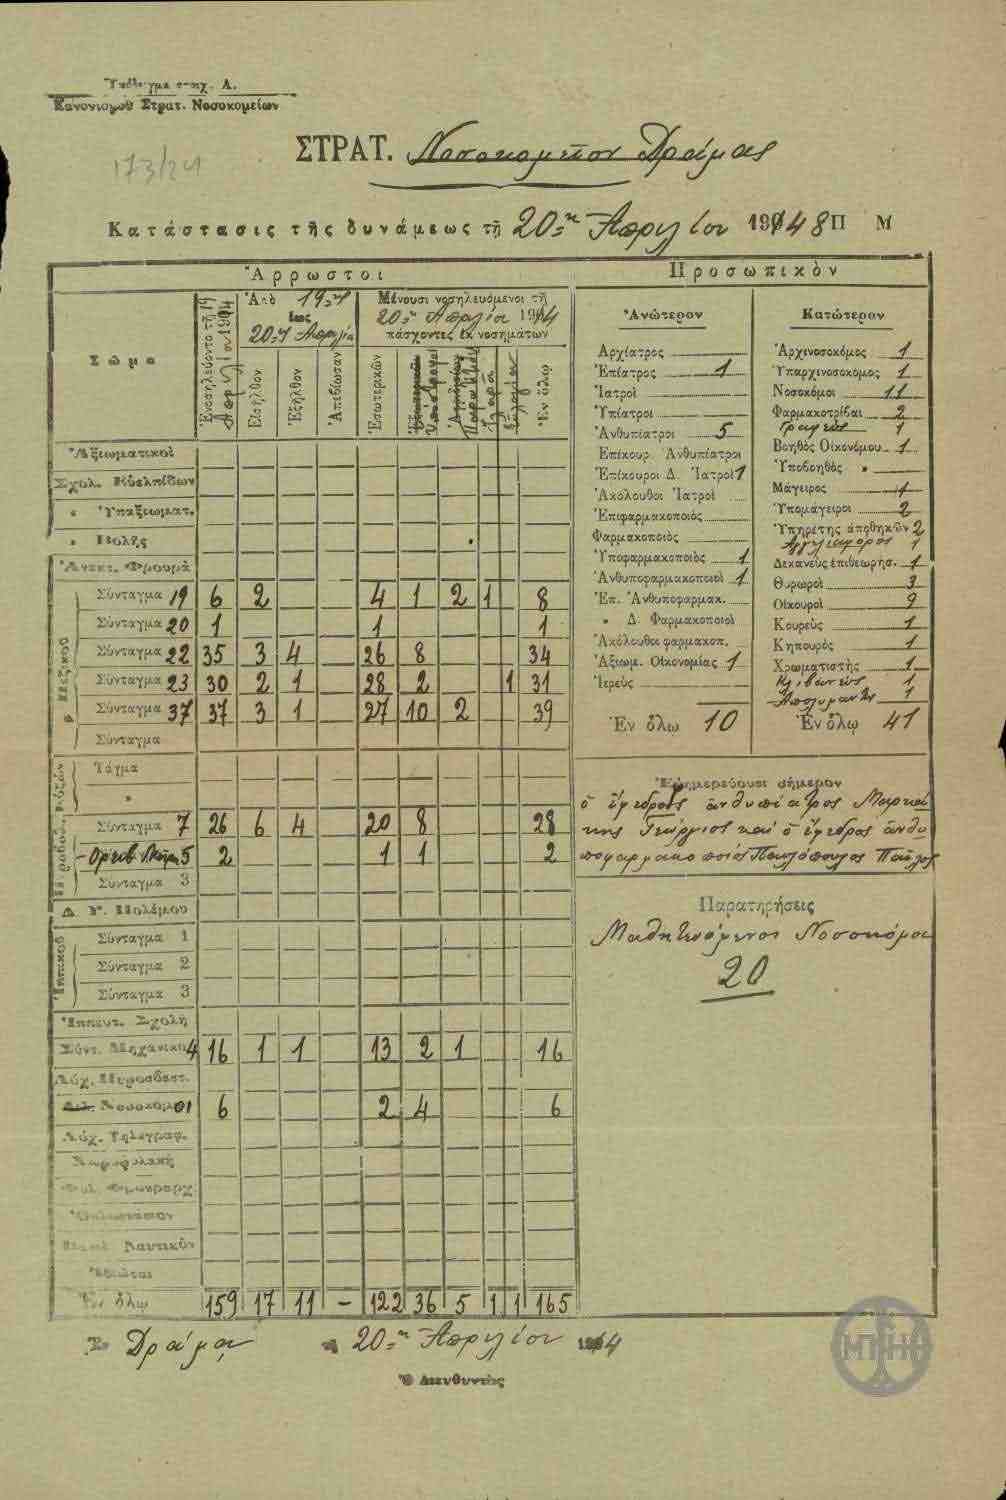 Ὑπόδειγμα στιχ. Α.
Κανονισμοῦ Στρατ. Νοσοκομείων
173/24
ΣΤΡΑΤ. Νοσοκομεῖον Δράμας
Κατάστασις τῆς δυνάμεως τῇ 20ῃ Ἀπριλίου 1914 8 Π Μ
Ἄρρωστοι
Σῶμα
Ἐνοσηλεύοντο τῇ 19 Ἀπριλίου 1914
Ἀπὸ 19ης
ἕως
20ης Ἀπριλίου
Εἰσῆλθον
Ἐξῆλθον
Ἀπεβίωσαν
Μένουσι νοσηλευόμενοι τῇ
20ῃ Ἀπριλίου 1914
πάσχοντες ἐκ νοσημάτων
Ἐσωτερικῶν
Ἐξωτερικῶν
Ἀφροδισίων
Ψώρα
Εὐλογία
Ἐν ὅλῳ
Ἀξιωματικοί
Σχολ. Εὐελπίδων
„ Ὑπαξιωματ.
„ Βολῆς
Ἀνακτ. Φρουρά
Πεζικοῦ
Σύνταγμα 19 6 2 4 1 2 1 8
Σύνταγμα 20 1 1 1
Σύνταγμα 22 35 3 4 26 8 34
Σύνταγμα 23 30 2 1 28 2 1 31
Σύνταγμα 37 37 3 1 27 10 2 39
Σύνταγμα
Εὐζώνων
Τάγμα
„
Πυροβολ.
Σύνταγμα 7 26 6 4 20 8 28
Ὀρειβ. Μοῖρα 5 2 1 1 2
Σύνταγμα 3
Δ. Υ. Πολέμου
Ἱππικοῦ
Σύνταγμα 1
Σύνταγμα 2
Σύνταγμα 3
Ἱππευτ. Σχολή
Σύντ. Μηχανικοῦ 4 16 1 1 13 2 1 16
Λόχ. Πυροσβεστ.
Νοσοκόμοι 6 2 4 6
Λόχ. Τηλεγραφ.
Χωροφυλακή
Φυλ. Φρουραρχ.
Ναυτικόν
Ἰδιῶται
Ἐν ὅλῳ 159 17 11 – 122 36 5 1 1 165
Προσωπικὸν
Ἀνώτερον
Ἀρχίατρος
Ἐπίατρος 1
Ἰατροί
Ὑπίατροι
Ἀνθυπίατροι 5
Ἐπίκουρ. Ἀνθυπίατροι
Ἐπίκουροι Δ. Ἰατροὶ 1
Ἀκόλουθοι Ἰατροί
Ἐπιφαρμακοποιός
Φαρμακοποιός
Ὑποφαρμακοποιός 1
Ἀνθυποφαρμακοποιοί 1
Ἐπ. Ἀνθυποφαρμακ.
„ Δ. Φαρμακοποιοί
Ἀκόλουθοι φαρμακοπ.
Ἀξιωμ. Οἰκονομίας 1
Ἱερεύς
Ἐν ὅλῳ 10
Κατώτερον
Ἀρχινοσοκόμος 1
Ὑπαρχινοσοκόμος 1
Νοσοκόμοι 11
Φαρμακοτρίβαι 2
Γραφεὺς 1
Βοηθὸς Οἰκονόμου 1
Ὑποβοηθὸς „
Μάγειρος 1
Ὑπομάγειροι 2
Ὑπηρέτης ἀποθηκῶν 2
Ἀγγελιαφόρος 1
Δεκανεὺς ἐπιθεωρήσ. 1
Θυρωροί 3
Οἰκουροί 9
Κουρεύς 1
Κηπουρός 1
Χρωματιστής 1
Κλιβανεὺς 1
Ἀπολυμαντὴς 1
Ἐν ὅλῳ 41
Ἐφημερεύουσι σήμερον
ὁ ἔφεδρος ἀνθυπίατρος Μαρκά
κης Γεώργιος καὶ ὁ ἔφεδρος ἀνθυ
ποφαρμακοποιὸς Παυλόπουλος Παῦλος
Παρατηρήσεις
Μαθητευόμενοι Νοσοκόμοι
20
Ἐν Δράμᾳ τῇ 20ῃ Ἀπριλίου 1914
Ὁ Διευθυντὴς